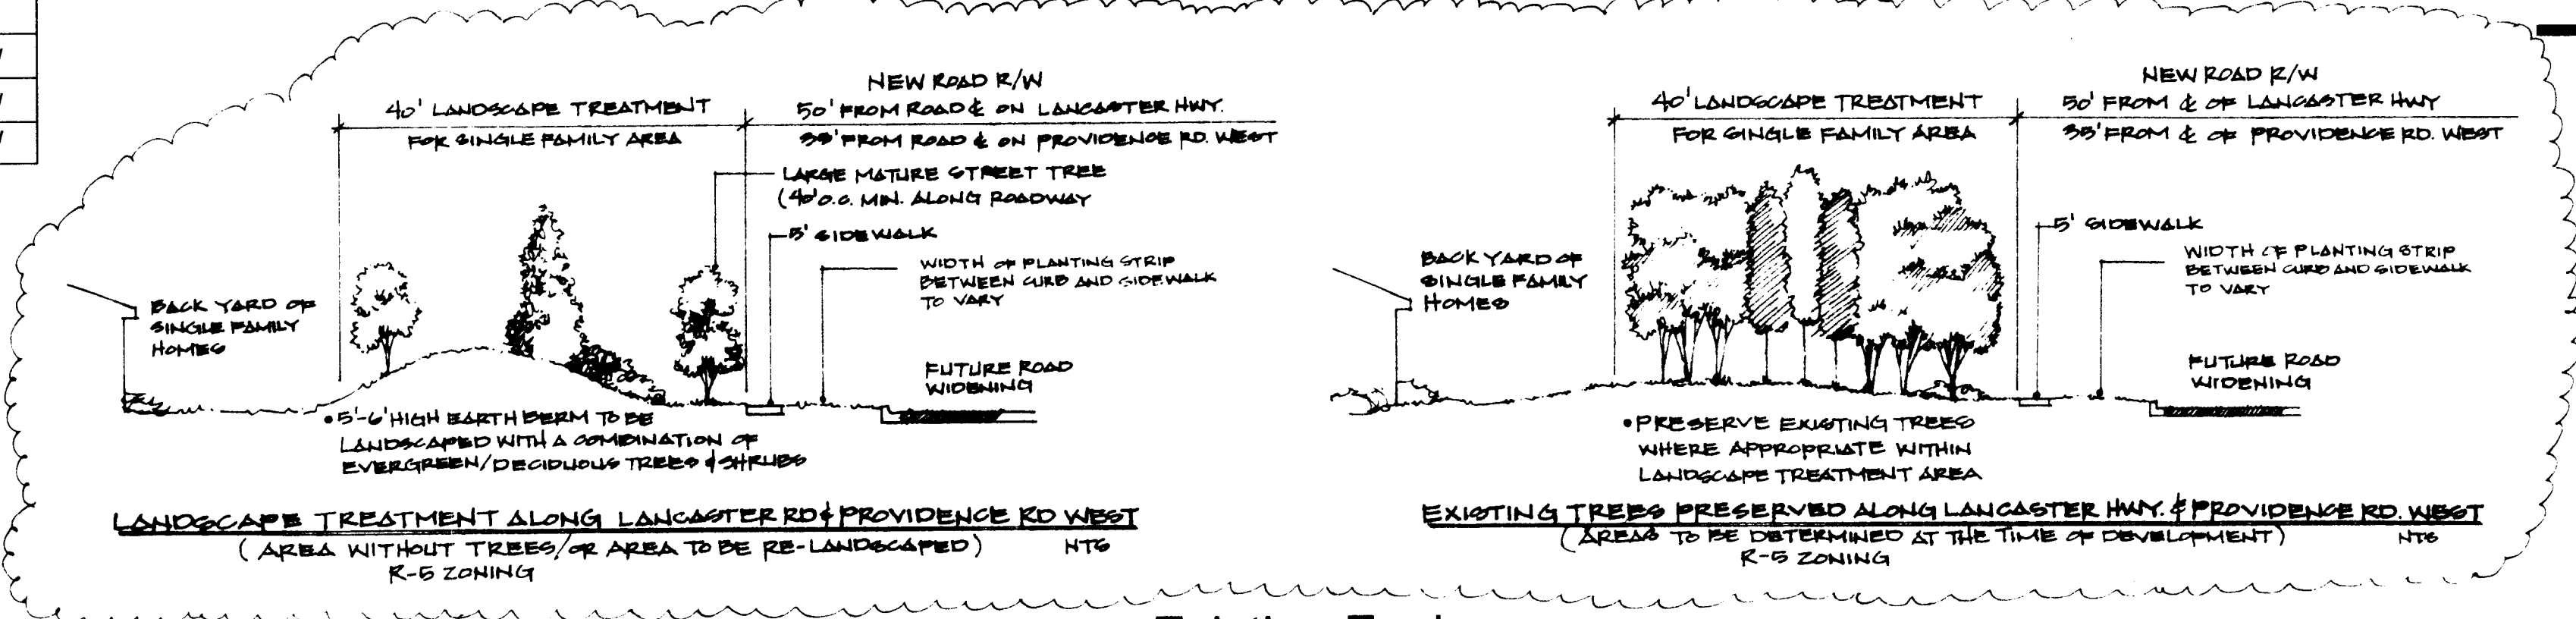 NEW ROAD R/W
40' LANDSCAPE TREATMENT
50' FROM ROAD ℄ ON LANCASTER HWY.
FOR SINGLE FAMILY AREA
35' FROM ROAD ℄ ON PROVIDENCE RD. WEST
LARGE MATURE STREET TREE
(40' O.C. MIN. ALONG ROADWAY
5' SIDEWALK
WIDTH OF PLANTING STRIP
BETWEEN CURB AND SIDEWALK
TO VARY
BACK YARD OF
SINGLE FAMILY
HOMES
FUTURE ROAD
WIDENING
• 5'-6' HIGH EARTH BERM TO BE
LANDSCAPED WITH A COMBINATION OF
EVERGREEN/DECIDUOUS TREES & SHRUBS
LANDSCAPE TREATMENT ALONG LANCASTER RD & PROVIDENCE RD WEST
(AREA WITHOUT TREES/OR AREA TO BE RE-LANDSCAPED) NTS
R-5 ZONING
NEW ROAD R/W
40' LANDSCAPE TREATMENT
50' FROM ℄ OF LANCASTER HWY
FOR SINGLE FAMILY AREA
35' FROM ℄ OF PROVIDENCE RD. WEST
5' SIDEWALK
WIDTH OF PLANTING STRIP
BETWEEN CURB AND SIDEWALK
TO VARY
BACK YARD OF
SINGLE FAMILY
HOMES
FUTURE ROAD
WIDENING
• PRESERVE EXISTING TREES
WHERE APPROPRIATE WITHIN
LANDSCAPE TREATMENT AREA
EXISTING TREES PRESERVED ALONG LANCASTER HWY. & PROVIDENCE RD. WEST
(AREAS TO BE DETERMINED AT THE TIME OF DEVELOPMENT) NTS
R-5 ZONING